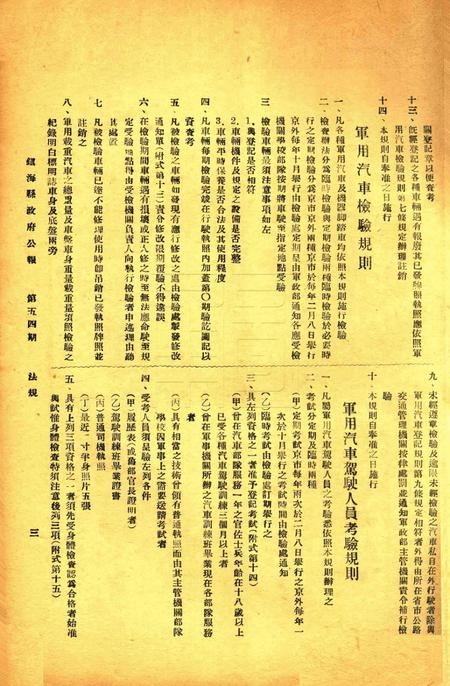 關登記章以便查考
十三、旣經登記之各種車輛遇有報廢其已發牌照執照應依照軍
用汽車檢驗規則第七條規定辦理註銷
十四、本規則自奉准之日施行
軍用汽車檢驗規則
一、凡各種軍用汽車及機器脚踏車均依照本規則施行檢驗
二、檢查辦法分爲臨時檢驗與定期檢驗兩種臨時檢驗於必要時
行之定期檢驗分爲京市京外兩種京市於每年二月八日舉行
京外於每年十月舉行由檢驗處定期呈由軍政部通知各應受檢
機關學校部隊按期將車駛至指定地點受驗
三 檢驗車輛最須注意事項如左
1. 與登記是否相符
2. 車輛機件及規定之設備是否完整
3. 車輛平時保養是否合法及其使用程度
四、凡車輛每期檢驗完竣在行駛執照內加蓋第〇期驗訖圖記以
資查考
五 凡被檢驗之車輛如發現有應行修改之處由檢驗處掣發修改
通知單(附式第十三)責令修改限期覆驗不得違誤
六、在檢驗期間車輛遇有損壞或正入修之時至無法應命駛至規
定受驗地點得由受檢機關負責人向執行檢驗者申述理由聽
其處置
七 凡被檢驗車輛已達不能修理使用時卽吊銷已發執照牌照並
註銷之
八、軍用載重汽車之總重量及車整車身重量載重量須照檢驗之
紀錄明白標明誌車身及底盤兩旁
九、未經遵章檢驗及逾限未經檢驗之汽車私自在外行駛者除與
軍用汽車登記規則第九條規定相符者外得由所在省市公路
交通管理機關按律處罰並通知軍政部主管機關責令補行檢
驗
十、本規則自奉准之日施行
軍用汽車駕駛人員考驗規則
一、凡屬軍用汽車駕駛人員之考驗悉依照本規則辦理之
二、考試分定期及臨時兩種
(甲)定期考試京市每年兩次於二月八日舉行之京外每年一
次於十月舉行之考試時間由檢驗處通知
(乙)臨時考試由檢驗處訂期舉行之
三、具左列資格之一者准予登記考試(附式第十四)
(甲)曾在汽車部隊服務一年之官佐士兵年齡在十八歲以上
已受各種汽車駕駛訓練三個月以上者
(乙)曾在軍事機關所辦之汽車訓練班畢業現在各部隊服務
者
(丙)具有相當之技術曾領有普通執照而由其主管機關部隊
學校因軍事上之需要送請考試者
四、受考人員須呈驗左列各件
(甲)履歷表(或爲部官長證明者)
(乙)駕駛訓練班畢業證書
(丙)普通司機執照
(丁)最近二寸半身照片五張
五、具有上列三項資格之一者須先受身體檢查認爲合格者始准
與試惟身體檢查特須注意後列三項(附式第十五)
鎮海縣政府公報 第五四期 法規 三